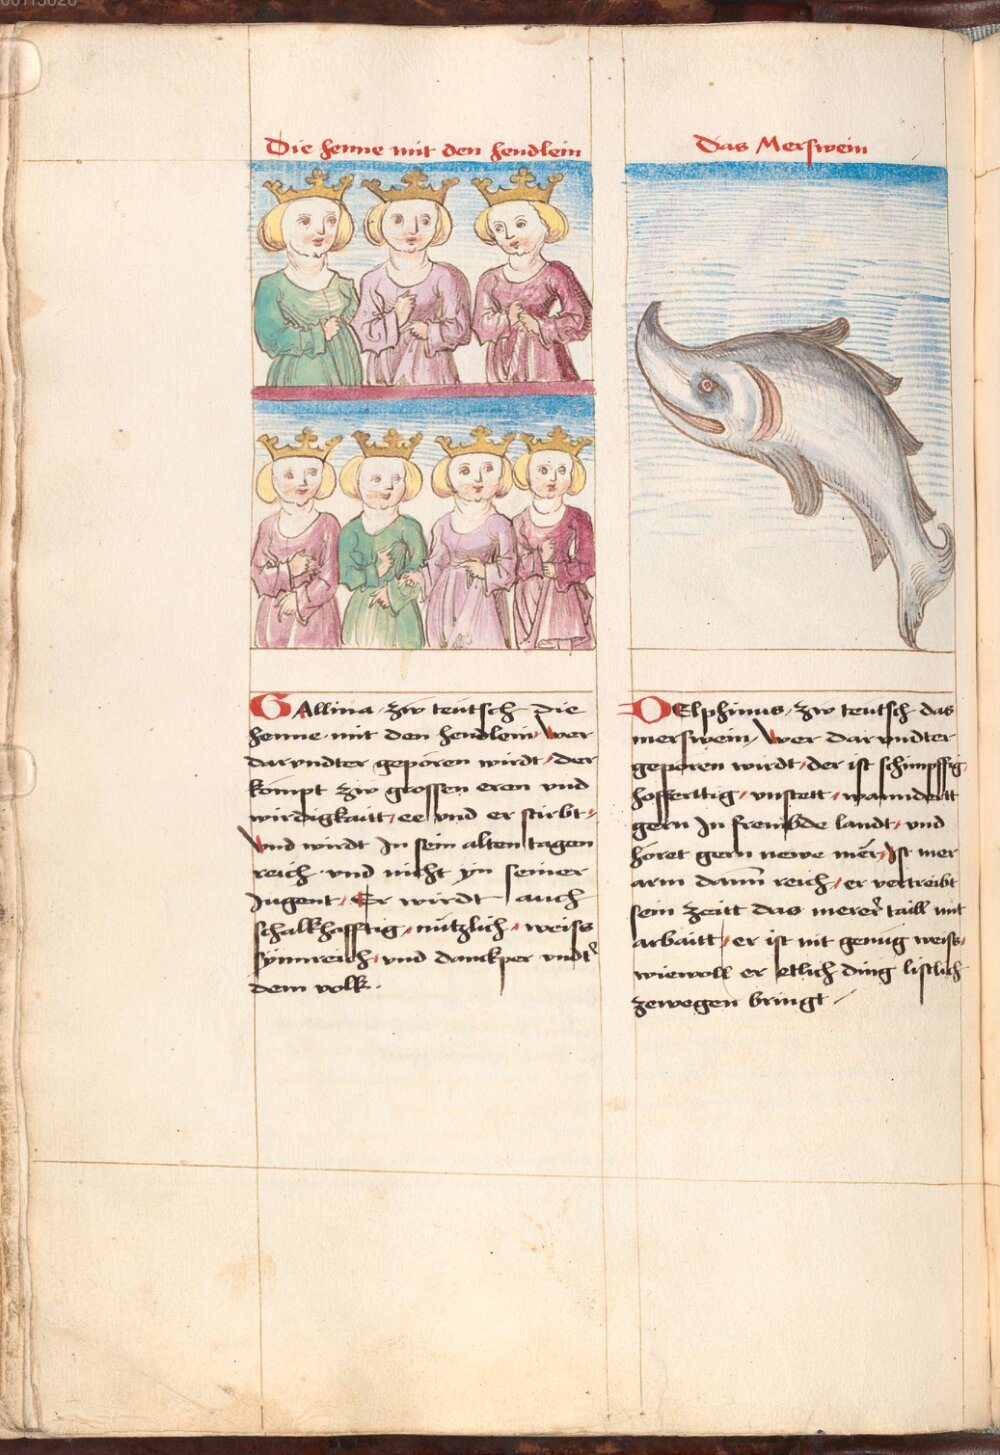 Die henne mit den hendlein
GAllina zw teutsch die
henne mit den hendlein wer
darundter geporen wirdt der
kompt zw grossen eren und
wirdigkaitt ee und er stirbt
Und wirdt In sein alten tagen
reich und nicht yn seiner
Jugent Er wirdt auch
schalkhafftig nützlich weiss
synnreich und danckper undtr
dem volk.
Das Merswein
DElphinus zw teutsch das
merswein Wer darundter
geporen wirdt der ist schimpffig
hofferttig unstett wanndertt
gern In frembde landt und
höret gern newe mer Ist mer
arm dann reich er vertreibt
sein zeitt das merer taill mit
arbaitt er ist nit genug weiss
wiewoll er etlich ding listlich
zewegen bringt